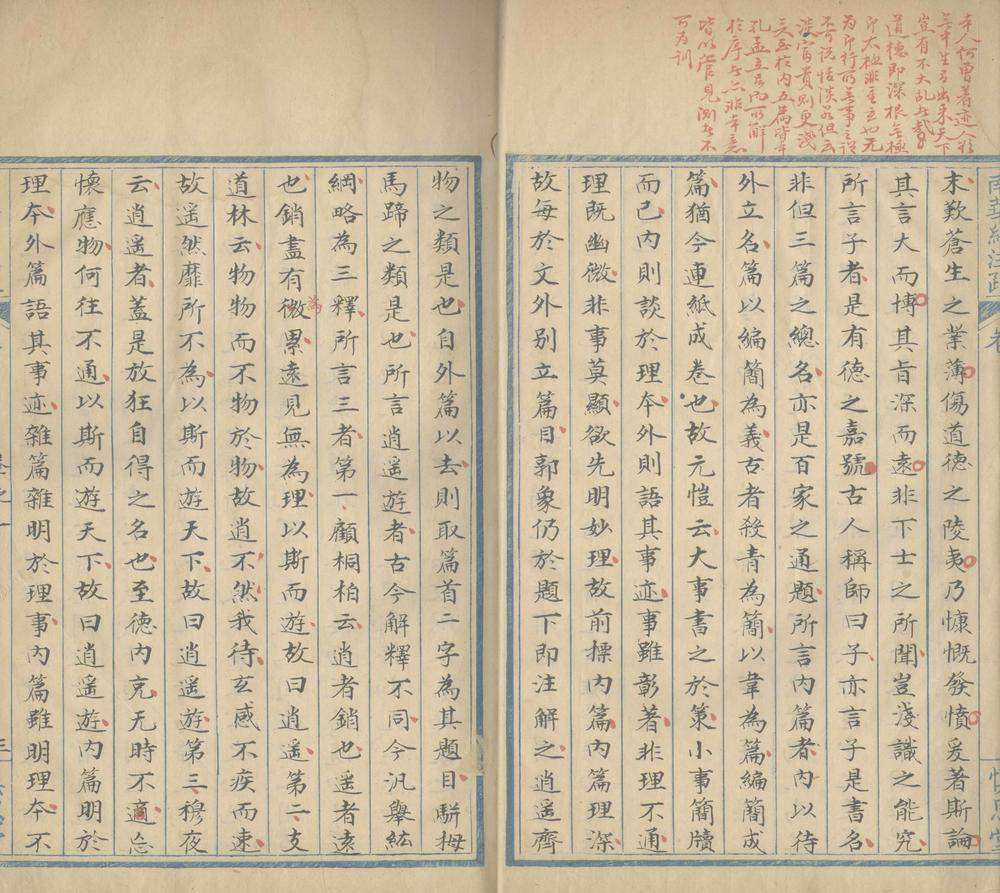 夫人何曾著迹今於
豈有不大亂者哉
道德即深根寧極
皆以管見測者不
可為訓
南華經注疏
末歎蒼生之業薄傷道德之陵夷乃慷慨發憤爰著斯論
其言大而博其旨深而遠非下士之所聞豈淺識之能究
所言子者是有德之嘉號古人稱師曰子亦言子是書名
非但三篇之總名亦是百家之通題所言內篇者內以待
外立名篇以編簡為義古者殺青為簡以韋為篇編簡成
篇猶今連紙成卷也故元愷云大事書之於策小事簡牘
而已內則談於理夲外則語其事迹事雖彰著非理不通
理既幽微非事莫顯欲先明妙理故前標內篇內篇理深
故每於文外別立篇目郭象仍於題下即注解之逍遥齊
物之類是也自外篇以去則取篇首二字為其題目駢拇
馬蹄之類是也所言逍遥遊者古今解釋不同今汎舉紘
綱略為三釋所言三者第一顧桐柏云逍者銷也遥者遠
也銷盡有為微累遠見無為理以斯而遊故曰逍遥第二支
道林云物物而不物於物故逍不然我待玄感不疾而速
故遥然靡所不為以斯而遊天下故曰逍遥遊第三穆夜
云逍遥者蓋是放狂自得之名也至德內充无時不適忘
懷應物何往不通以斯而遊天下故曰逍遥遊內篇明於
理夲外篇語其事迹雜篇雜明於理事內篇雖明理夲不